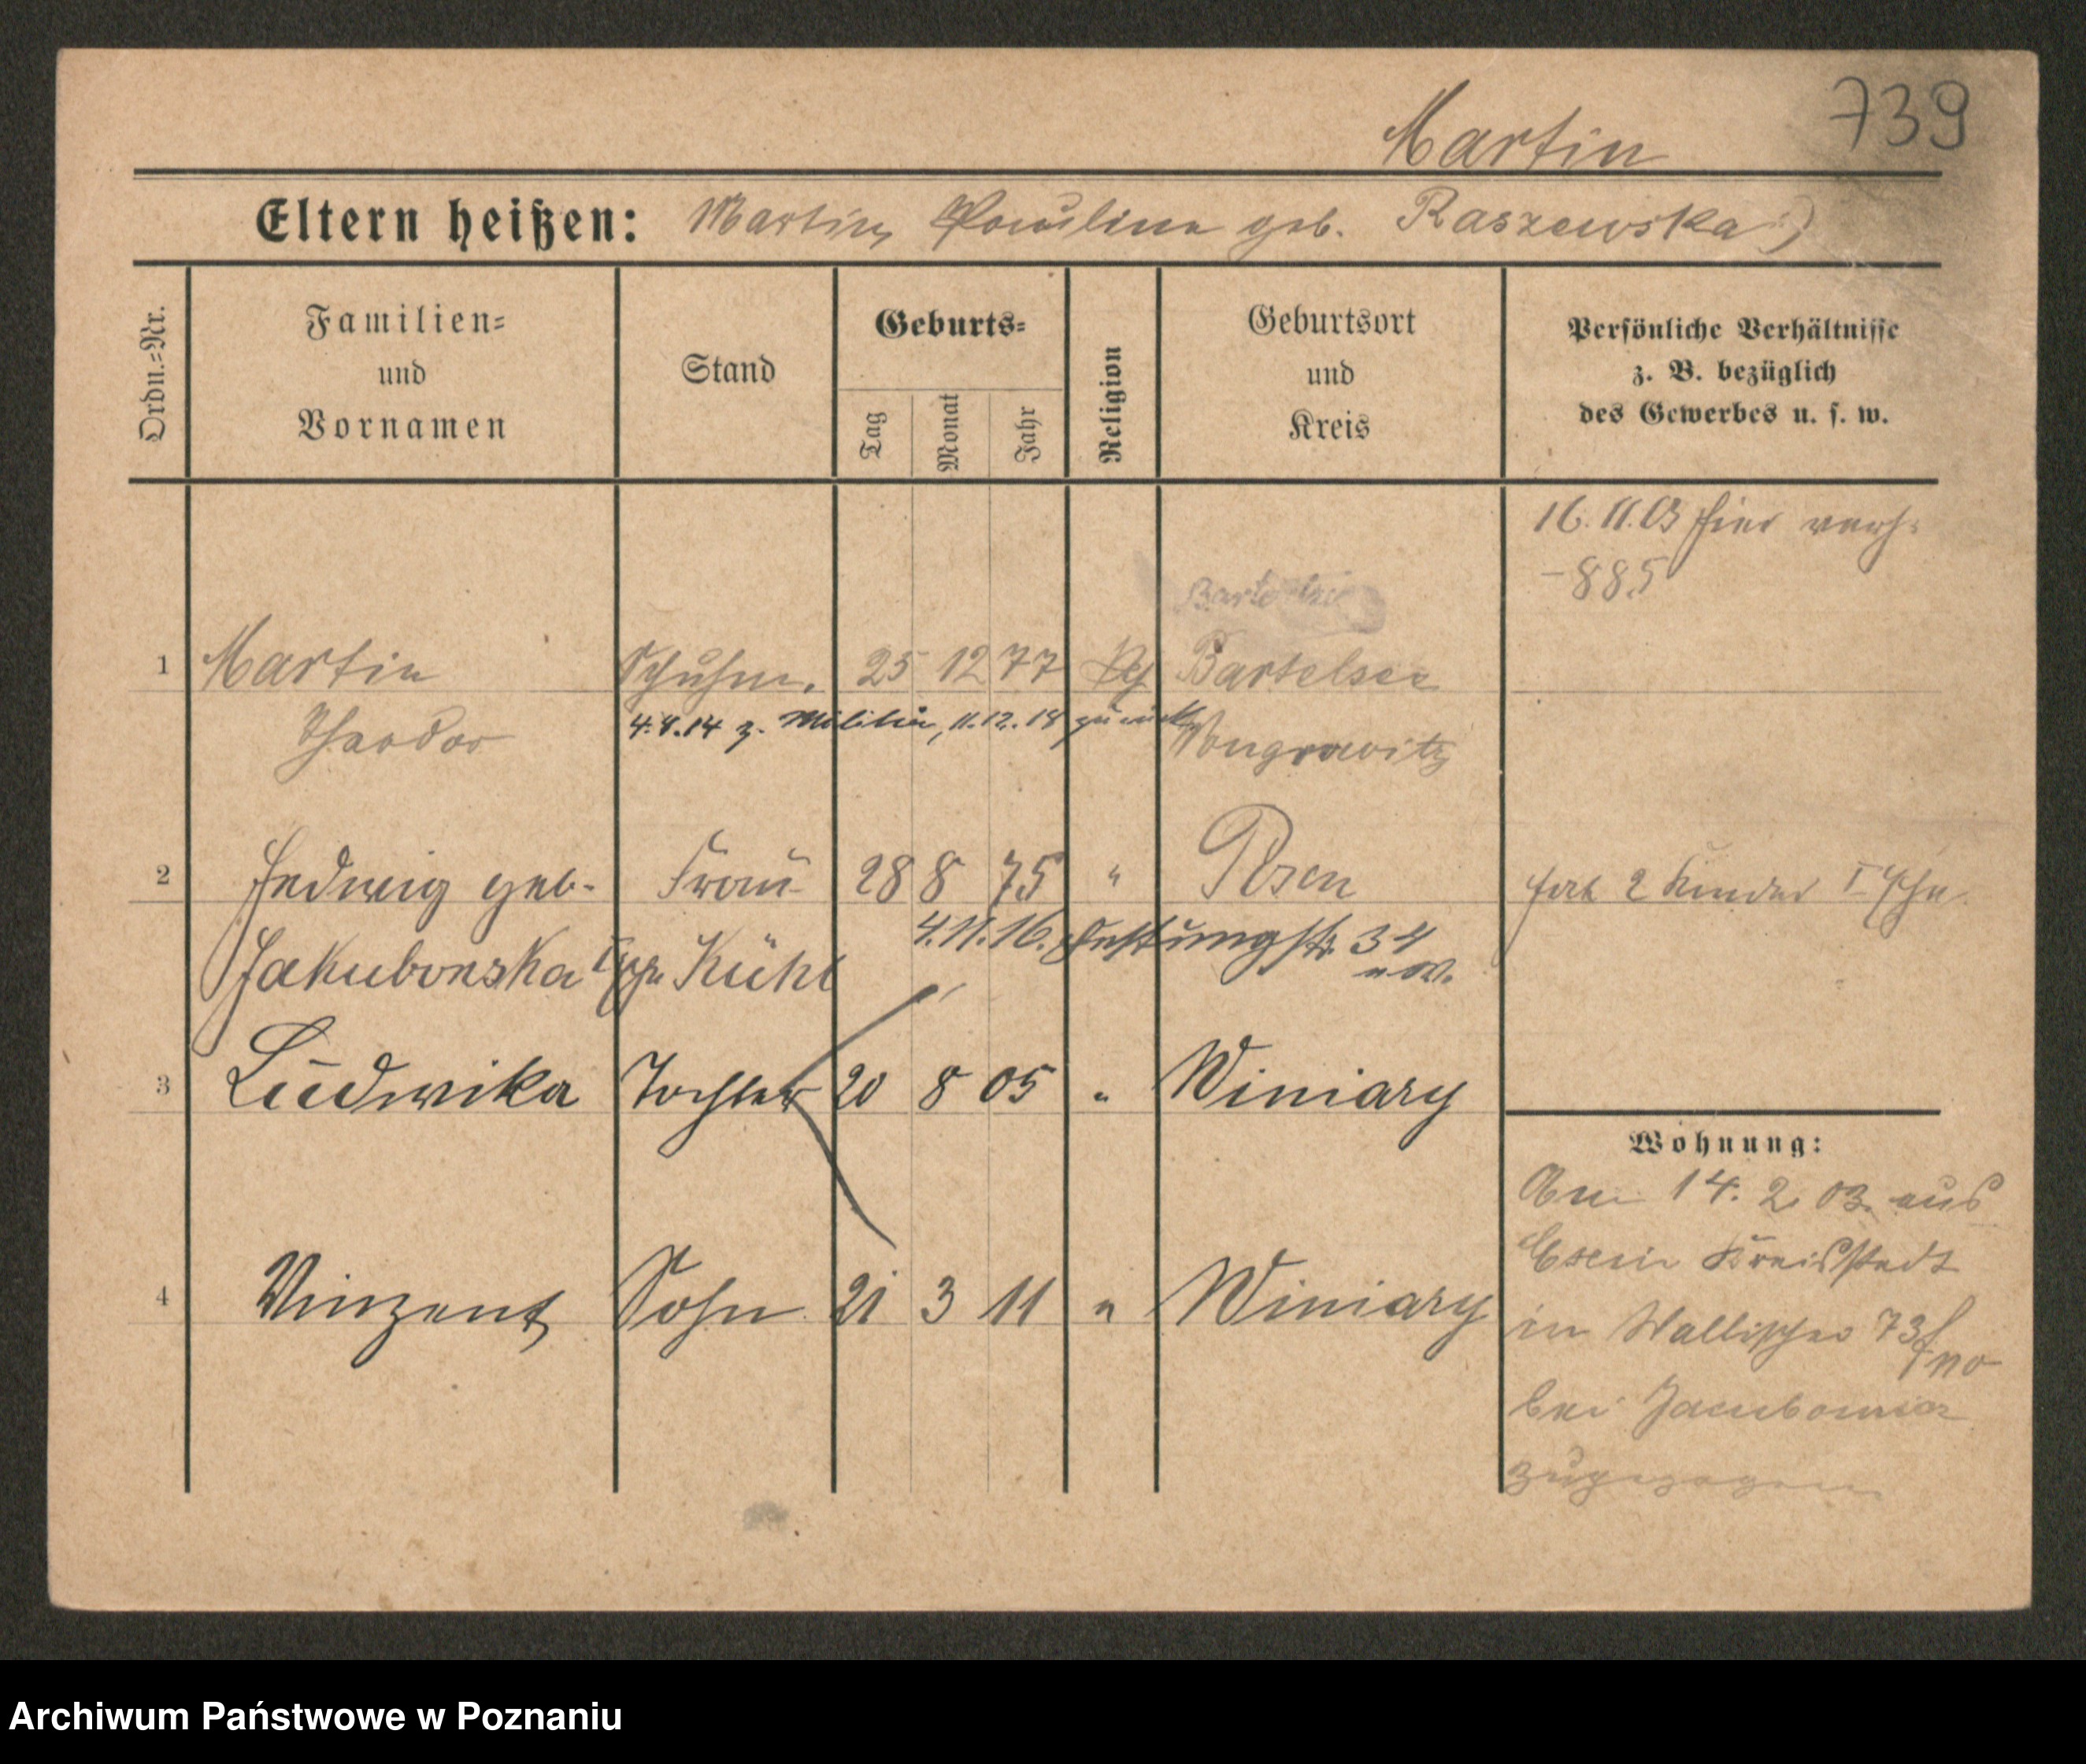 739
Martin
Eltern heißen: Martin, Paulina geb. Raszewska
Ordn.=Nr.
Familien=
und
Vornamen
Stand
Geburts=
Tag
Monat
Jahr
Religion
Geburtsort
und
Kreis
Persönliche Verhältnisse
z. B. bezüglich
des Gewerbes u. s. w.
16.11.03 hier verh.
-885
1 Martin Schuhm. 25 12 77 Bartelsee
Theodor
4.8.14 z. Militär, 11.12.18 zurück
Wongrowitz
2 Hedwig geb. Frau 28 8 75 " Posen
hat 2 Kinder I Ehe
Jakubowska Kühl
4.11.16. Festungstr. 34
3 Ludwika Tochter 20 8 05 " Winiary
4 Vinzent Sohn 21 3 11 " Winiary
Wohnung:
Am 14. 2. 03. aus
Kreisstadt
in Wallischei 73
bei
zugezogen
Archiwum Państwowe w Poznaniu